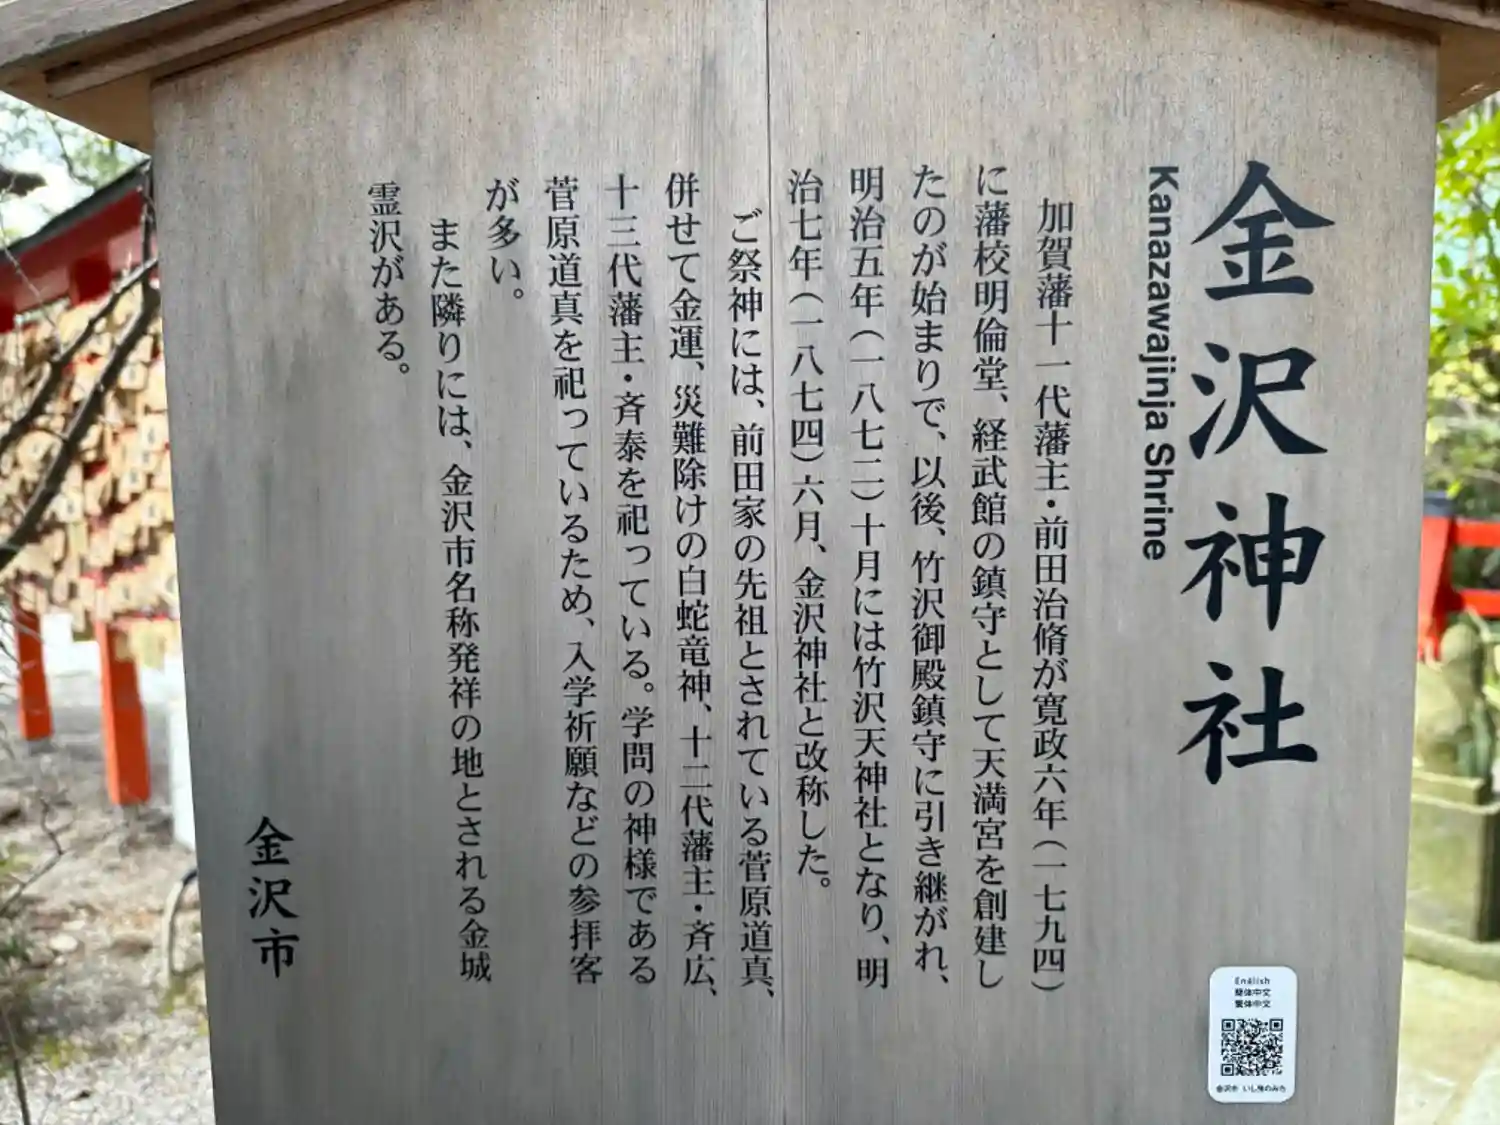 金沢神社
Kanazawajinja Shrine
加賀藩十一代藩主・前田治脩が寛政六年(一七九四)
に藩校明倫堂、経武館の鎮守として天満宮を創建し
たのが始まりで、以後、竹沢御殿鎮守に引き継がれ、
明治五年(一八七二)十月には竹沢天神社となり、明
治七年(一八七四)六月、金沢神社と改称した。
ご祭神には、前田家の先祖とされている菅原道真、
併せて金運、災難除けの白蛇竜神、十二代藩主・斉広、
十三代藩主・斉泰を祀っている。学問の神様である
菅原道真を祀っているため、入学祈願などの参拝客
が多い。
また隣りには、金沢市名称発祥の地とされる金城
霊沢がある。
金沢市
English
簡体中文
繁体中文
金沢市 いし曳のみち